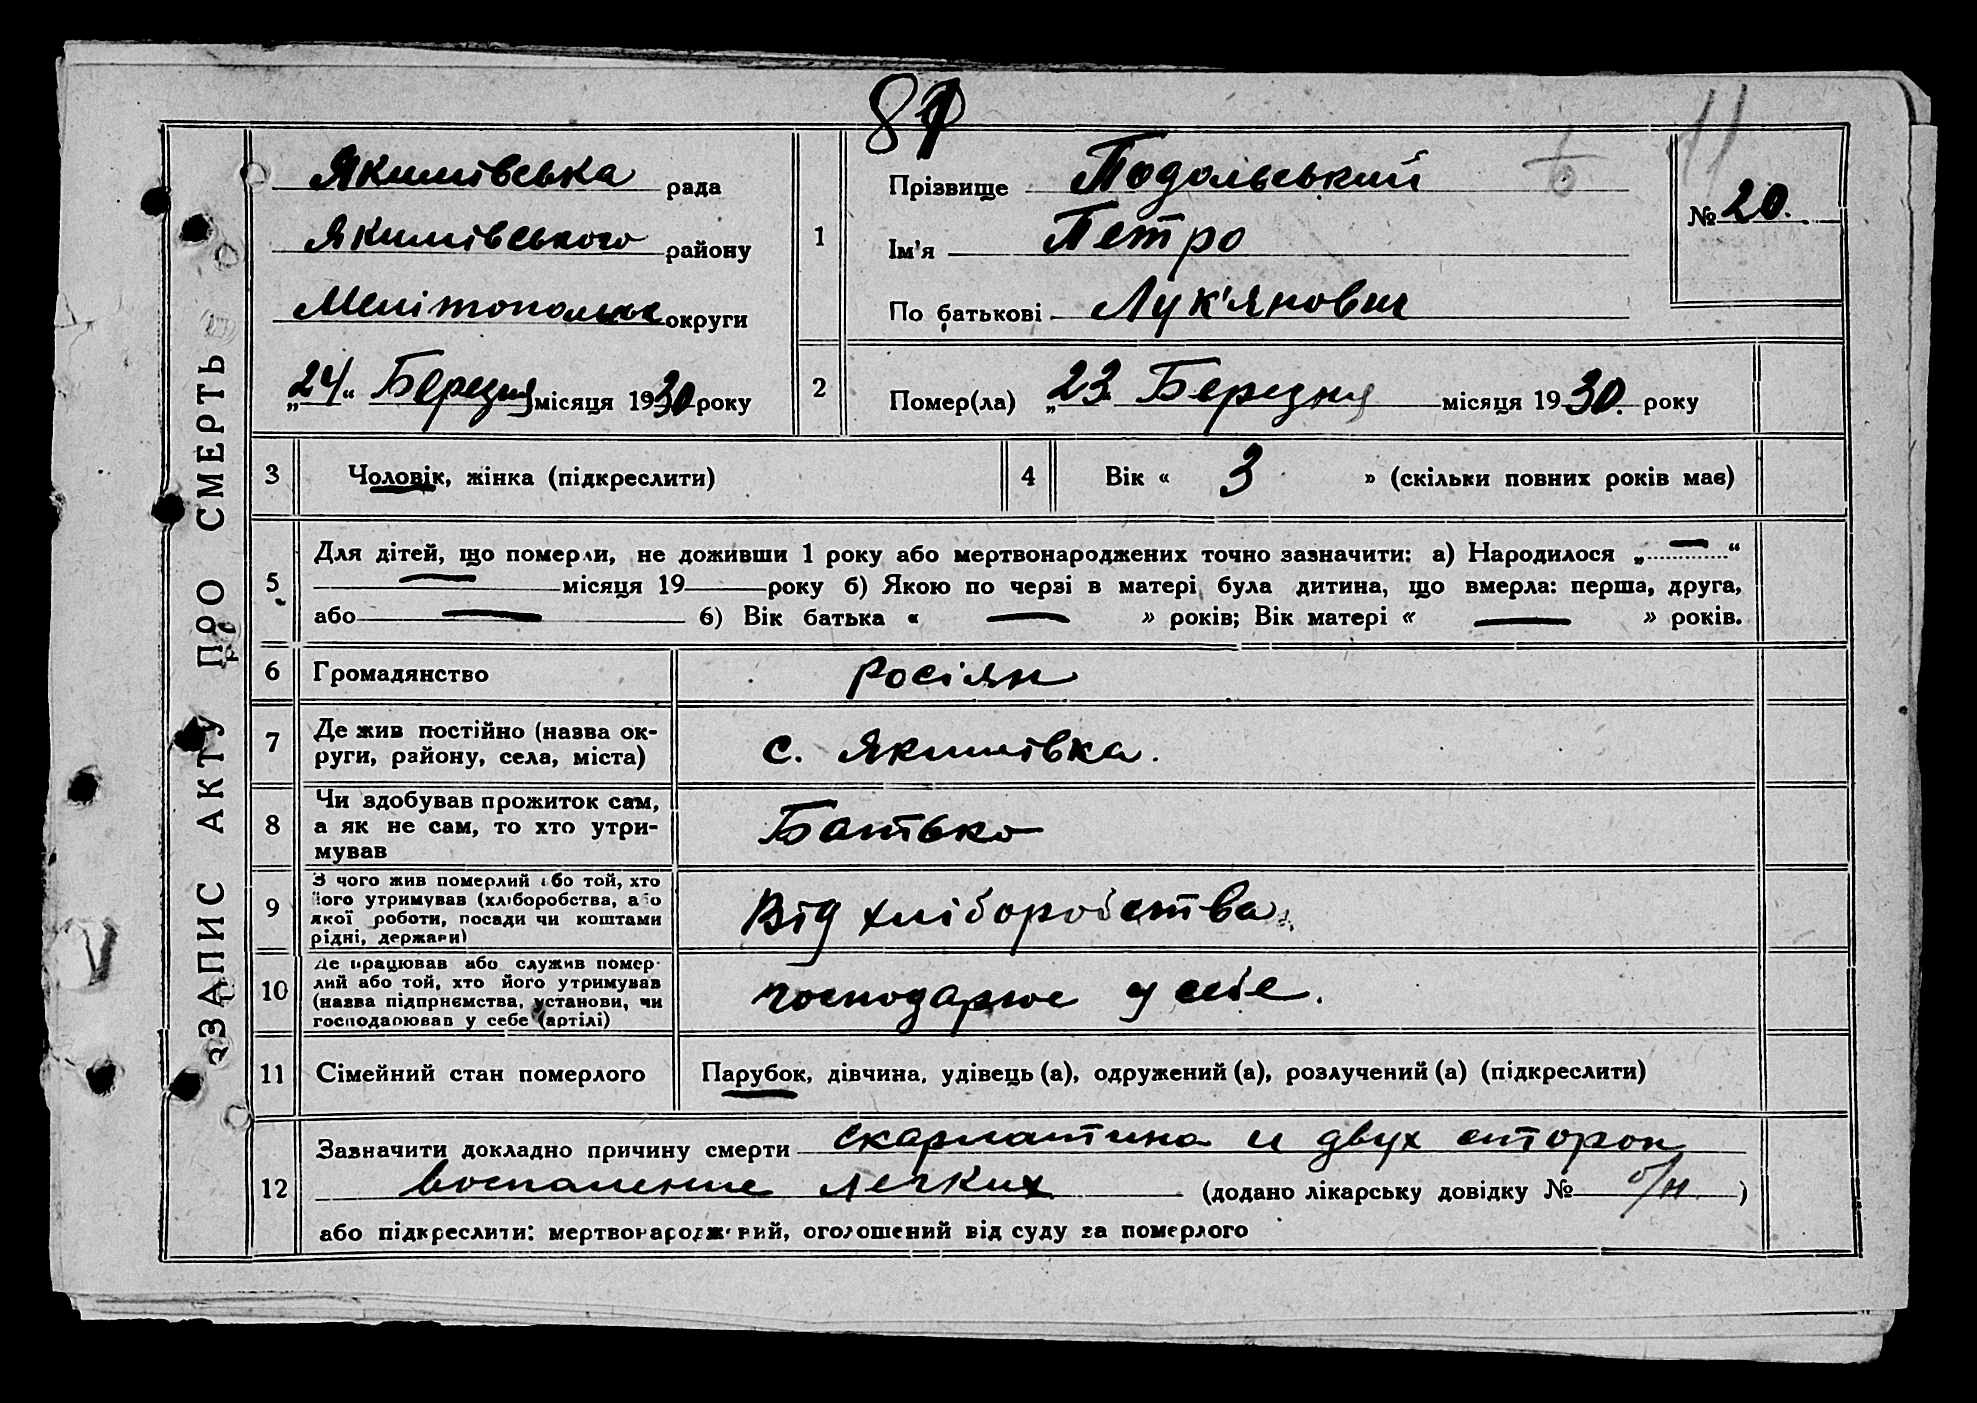 ЗАПИС АКТУ ПРО СМЕРТЬ
11
Якимівська рада
Якимівського району
Мелітопольс округи
„24“ Березня місяця 1930 року
1
Прізвище Подольський
Ім'я Петро
По батькові Лук'янович
№ 20.
2
Помер(ла) „23. Березня місяця 1930. року
3 Чоловік, жінка (підкреслити)
4 Вік « 3 » (скільки повних років має)
5
Для дітей, що померли, не доживши 1 року або мертвонароджених точно зазначити: а) Народилося „ — “
— місяця 19 року б) Якою по черзі в матері була дитина, що вмерла: перша, друга,
або — 6) Вік батька « — » років; Вік матері « — » років.
6 Громадянство росіян
7 Де жив постійно (назва ок-
руги, району, села, міста)
с. Якимівка.
8 Чи здобував прожиток сам,
а як не сам, то хто утри-
мував
Батько
9 З чого жив померлий або той, хто
його утримував (хліборобства, або
якої роботи, посади чи коштами
рідні, держави)
Від хліборобства
10 Де працював або служив помер-
лий або той, хто його утримував
(назва підприємства, установи, чи
господарював у себе (артілі)
господарює у себе.
11 Сімейний стан померлого Парубок, дівчина, удівець (а), одружений (а), розлучений (а) (підкреслити)
12 Зазначити докладно причину смерти скарлатина и двух сторон
воспаление легких (додано лікарську довідку № б/н )
або підкреслити: мертвонароджений, оголошений від суду за померлого